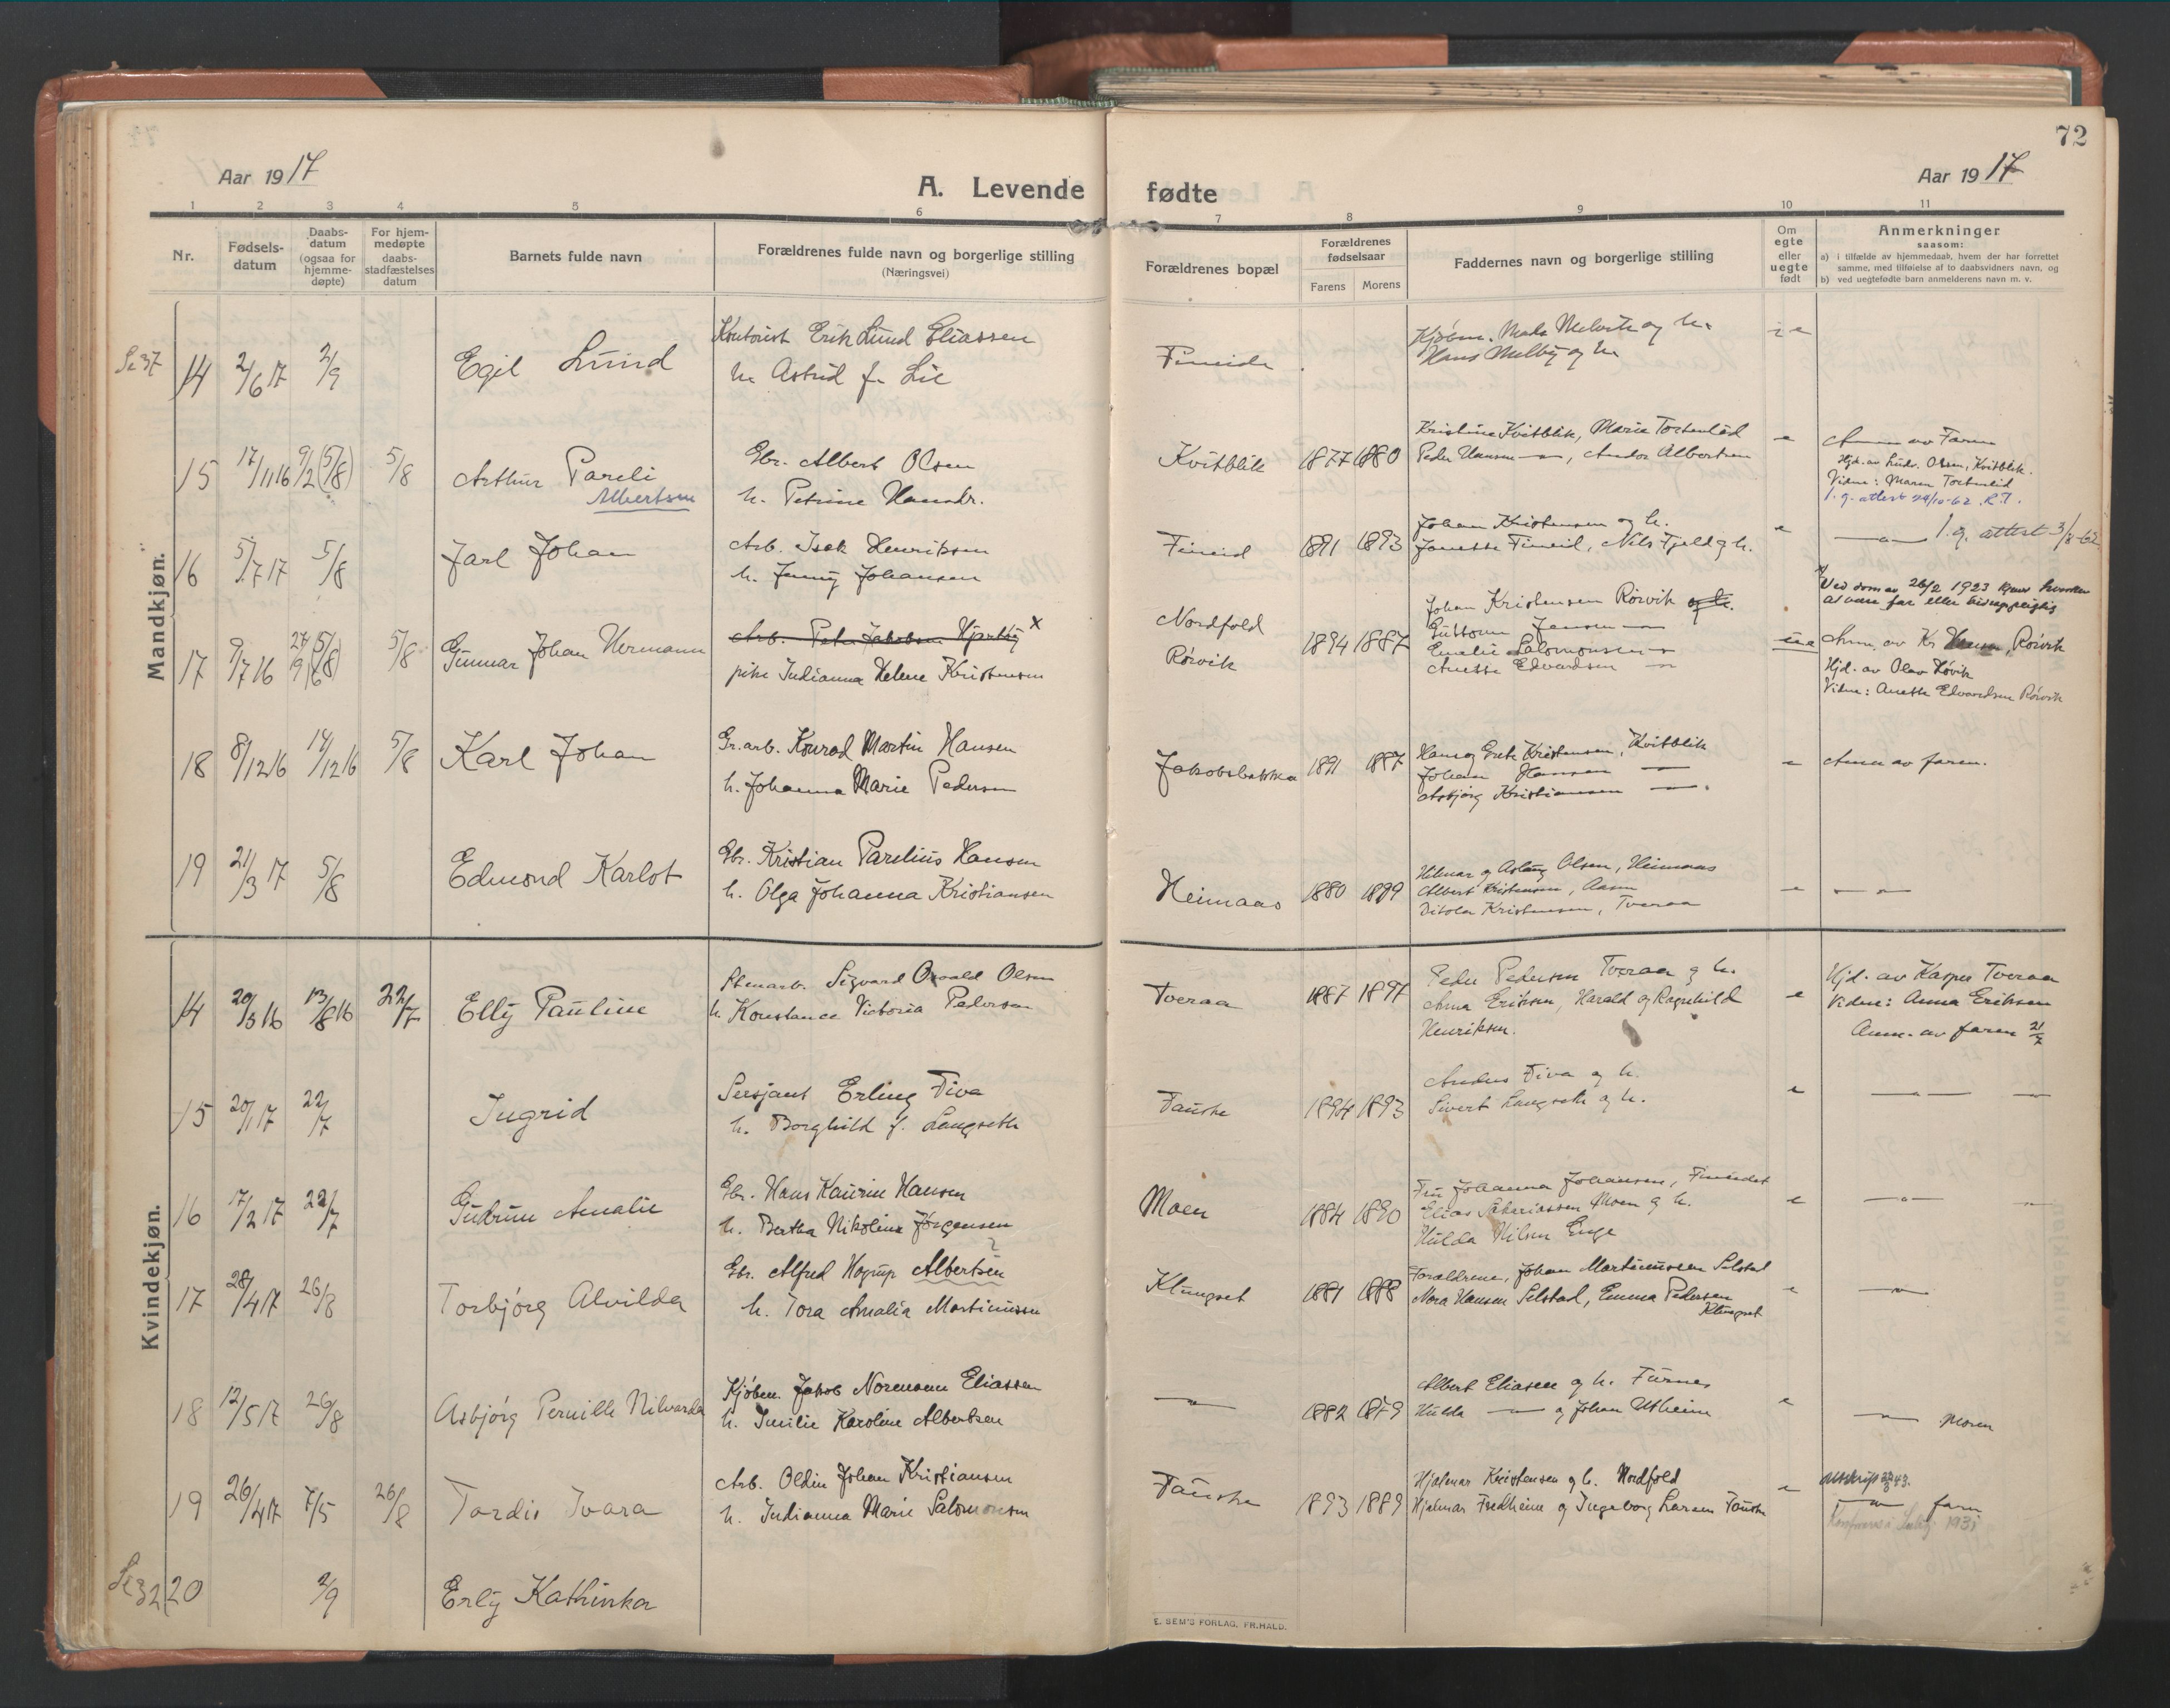 72
Aar 1917
A. Levende fødte
Aar 1917
1 2 3 4 5 6 7 8 9 10 11
Nr.
Fødsels-
datum
Daabs-
datum
(ogsaa for
hjemme-
døpte)
For hjem-
medøpte
daabs-
stadfæstelses
datum
Barnets fulde navn
Forældrenes fulde navn og borgerlige stilling
(Næringsvei)
Forældrenes bopæl
Forældrenes
fødselsaar
Farens Morens
Faddernes navn og borgerlige stilling
Om
egte
eller
uegte
født
Anmerkninger
saasom:
a) i tilfælde av hjemmedaab, hvem der har forrettet
samme, med tilføielse af to daabsvidners navn, og
b) ved uegtefødte barn anmelderens navn m. v.
Mandkjøn.
14 2/6 17 2/9 Egil Lund
Kontorist Erik Lund Eliassen
h. Astrid f. Lie
Fineide
Hans Melby og h.
15 17/11 16 9/2 (5/8) 5/8 Arthur Pareli
Albertsen
Gbr. Albert Olsen
h. Petrine Hansdr.
Kvitblik 1877 1880
Kristine Kvitblik, Marie Tortenlid
Peder Hansen —"—, Andor Albertsen
e
Anm av Faren
Hjd. av Ludv. Olsen, Kvitblik.
Vidne: Maren Tortenlid
l.g. attest 24/10-62. R.T.
16 5/7 17 5/8 Jarl Johan
Arb. Isak Henriksen
h. Jenny Johansen
Fineid 1891 1893
Johan Kristensen og h.
Janette Fineid, Nils Fjeld og h.
e
—"— l.g. attest 3/8-62
17 9/7 16 27/9 (5/8) 5/8 Gunnar Johan Hermann
Arb. Peter Jakobsen x
pike Indianna Helene Kristensen
Nordfold
Rørvik
1894 1887
Johan Kristensen Rørvik og h.
Guttorm Jensen —"—
Emelie Salomonsen —"—
Anette Edvardsen —"—
Ved dom av 26/2 1923
Anm. av Kr. Rørvik
Hjd. av Olav Løvik
Vidne: Anette Edvardsen Rørvik
18 8/12 16 14/12 16 5/8 Karl Johan
Gr.arb. Konrad Martin Hansen
h. Johanna Marie Pedersen
Jakobsbakken 1891 1887
Hans og Grete Kristensen, Kvitblik
Johan Hansen —"—
Asbjørg Kristiansen —"—.
e
Anm av faren.
19 21/3 17 5/8 Edmond Karlot
Gbr. Kristian Parelius Hansen
h. Olga Johanna Kristiansen
Heimaas 1880 1889
Hilmar og Aslaug Olsen, Heimaas
Albert Kristensen, Aasen
Kristensen, Tveraa
e
—"—
Kvindekjøn.
14 20/5 16 13/8 16 22/7 Elly Pauline
Stenarb. Sigvard Osvald Olsen
h. Konstance Victoria Pedersen
Tveraa 1887 1897
Peder Pedersen Tveraa og h.
Anna Eriksen, Harald og Ragnhild
Henriksen.
e
Hjd. av Kasper Tveraa
Vidne: Anna Eriksen
Anm. av faren 21/7
15 20/1 17 22/7 Ingrid
Sersjant Erling Fiva
h. Borghild f. Langseth
Fauske 1894 1893
Anders Fiva og h.
Sivert Langseth og h.
e
—"— —"—
16 17/2 17 22/7 Gudrun Amalie
Gbr. Hans Kaurin Hansen
h. Bertha Nikoline Jørgensen
Moen 1884 1890
Fru Johanna Johansen, Fineidet
Elias Sakariassen Moen og h.
Hulda Nilsen Enge
e
—"— "
17 28/4 17 26/8 Torbjørg Alvilda
Gbr. Alfred Hagrup Albertsen ?
h. Tora Amalia Martinussen
Klungset 1881 1888
Forældrene, Johan Martinussen Selstad
Nora Hansen Selstad, Emma Pedersen
Klungset
e
—"—
18 12/5 17 26/8 Asbjørg Pernille Nilvarda
Kjøbm. Jakob Normann Eliassen
h. Emilie Karoline Albertsen
—"— 1882 1879
Albert Eliassen og h. Furnes
Hulda —"— og Johan Utheim
e
—"— Moren
19 26/4 17 7/5 26/8 Tordis Ivara
Arb. Oldin Johan Kristiansen
h. Indianna Marie Salomonsen
Fauske 1893 1889
Hjalmar Kristensen og h. Nordfold
Hjalmar Fredheim og Ingeborg Larsen Fauske
e
—"— faren
1931
20 2/9 Erly Kathinka
E. SEM'S FORLAG, FR.HALD.